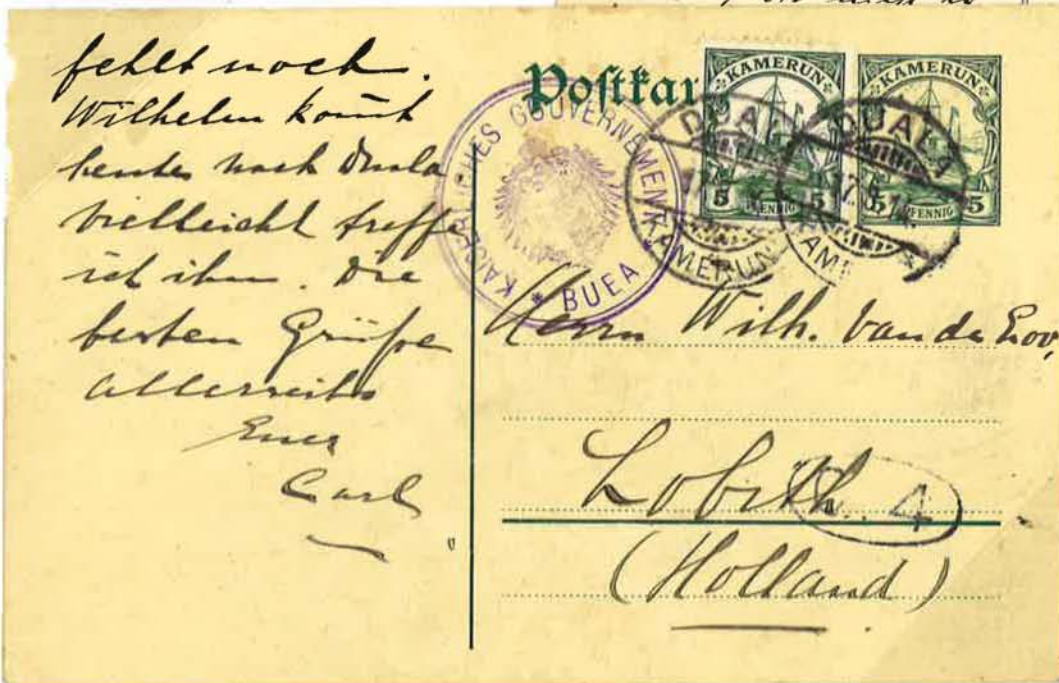 fehlt noch.
Wilhelm kom̄t
heute nach Duala
vielleicht treffe
ich ihn. Die
besten Grüße
allerseits
Euer
Carl
Postkar
KAMERUN
5 PFENNIG 5
KAMERUN
5 PFENNIG 5
DUALA
KAMERUN
DUALA
KAISERLICHES GOUVERNEMENT
* BUEA *
Herrn Wilh. van de Loo,
Lobith.
4
(Holland)